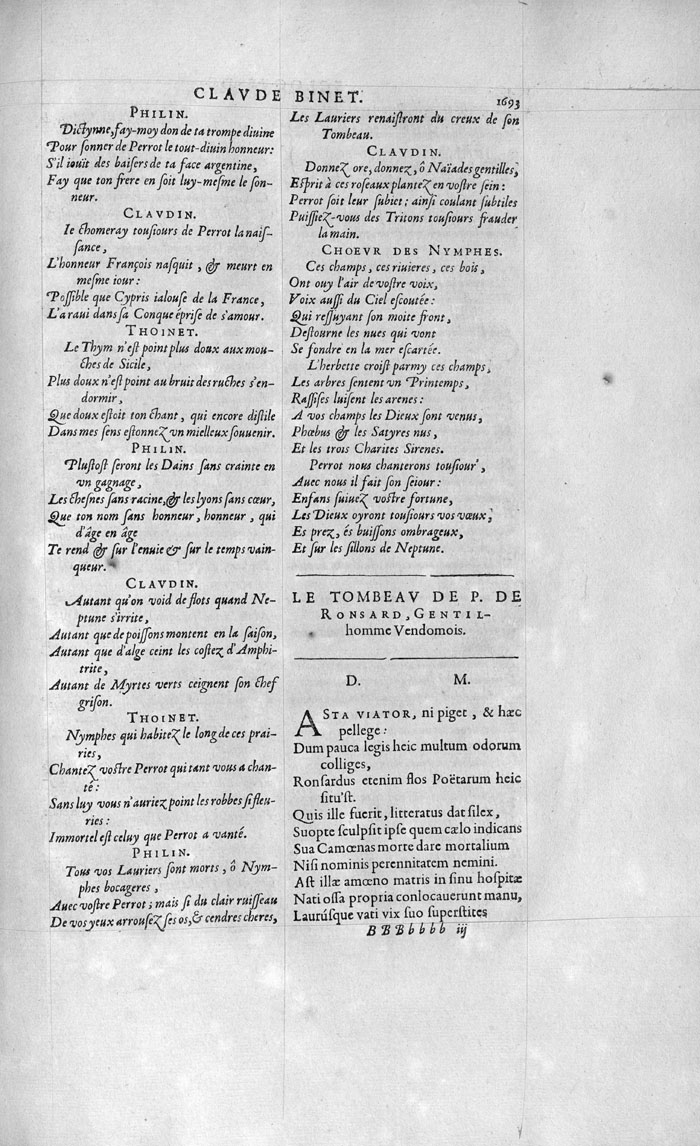 CLAVDE BINET.
1693
PHILIN.
Dictynne, fay-moy don de ta trompe diuine
Pour sonner de Perrot le tout-diuin honneur:
S'il iouït des baisers de ta face argentine,
Fay que ton frere en soit luy-mesme le son-
neur.
CLAVDIN.
Ie chomeray tousiours de Perrot la nais-
sance,
L'honneur François nasquit, & meurt en
mesme iour:
Possible que Cypris ialouse de la France,
L'a raui dans sa Conque éprise de s'amour.
THOINET.
Le Thym n'est point plus doux aux mou-
ches de Sicile,
Plus doux n'est point au bruit des ruches s'en-
dormir,
Que doux estoit ton chant, qui encore distile
Dans mes sens estonnez vn mielleux souuenir.
PHILIN.
Plustost seront les Dains sans crainte en
vn gagnage,
Les chesnes sans racine, & les lyons sans cœur,
Que ton nom sans honneur, honneur, qui
d'âge en âge
Te rend & sur l'enuie & sur le temps vain-
queur.
CLAVDIN.
Autant qu'on void de flots quand Ne-
ptune s'irrite,
Autant que de poissons montent en la saison,
Autant que d'alge ceint les costez d'Amphi-
trite,
Autant de Myrtes verts ceignent son chef
grison.
THOINET.
Nymphes qui habitez le long de ces prai-
ries,
Chantez vostre Perrot qui tant vous a chan-
té:
Sans luy vous n'auriez point les robbes si fleu-
ries:
Immortel est celuy que Perrot a vanté.
PHILIN.
Tous vos Lauriers sont morts, ô Nym-
phes bocageres,
Auec vostre Perrot; mais si du clair ruisseau
De vos yeux arrousez ses os, & cendres cheres,
Les Lauriers renaistront du creux de son
Tombeau.
CLAVDIN.
Donnez ore, donnez, ô Naïades gentilles,
Esprit à ces roseaux plantez en vostre sein:
Perrot soit leur subiet; ainsi coulant subtiles
Puissiez-vous des Tritons tousiours frauder
la main.
CHOEVR DES NYMPHES.
Ces champs, ces riuieres, ces bois,
Ont ouy l'air de vostre voix,
Voix aussi du Ciel escoutée:
Qui ressuyant son moite front,
Destourne les nues qui vont
Se fondre en la mer escartée.
L'herbette croist parmy ces champs,
Les arbres sentent vn Printemps,
Rassises luisent les arenes:
A vos champs les Dieux sont venus,
Phœbus & les Satyres nus,
Et les trois Charites Sirenes.
Perrot nous chanterons tousiour',
Auec nous il fait son seiour:
Enfans suiuez vostre fortune,
Les Dieux oyront tousiours vos vœux,
Es prez, és buissons ombrageux,
Et sur les sillons de Neptune.
LE TOMBEAV DE P. DE
RONSARD, GENTIL-
homme Vendomois.
D. M.
ASTA VIATOR, ni piget, & hæc
pellege:
Dum pauca legis heic multum odorum
colliges,
Ronsardus etenim flos Poëtarum heic
situ'st.
Quis ille fuerit, litteratus dat silex,
Suopte sculpsit ipse quem cælo indicans
Sua Camœnas morte dare mortalium
Nisi nominis perennitatem nemini.
Ast illæ amœno matris in sinu hospitæ
Nati ossa propria conlocauerunt manu,
Laurúsque vati vix suo superstites
BBBbbbb iij